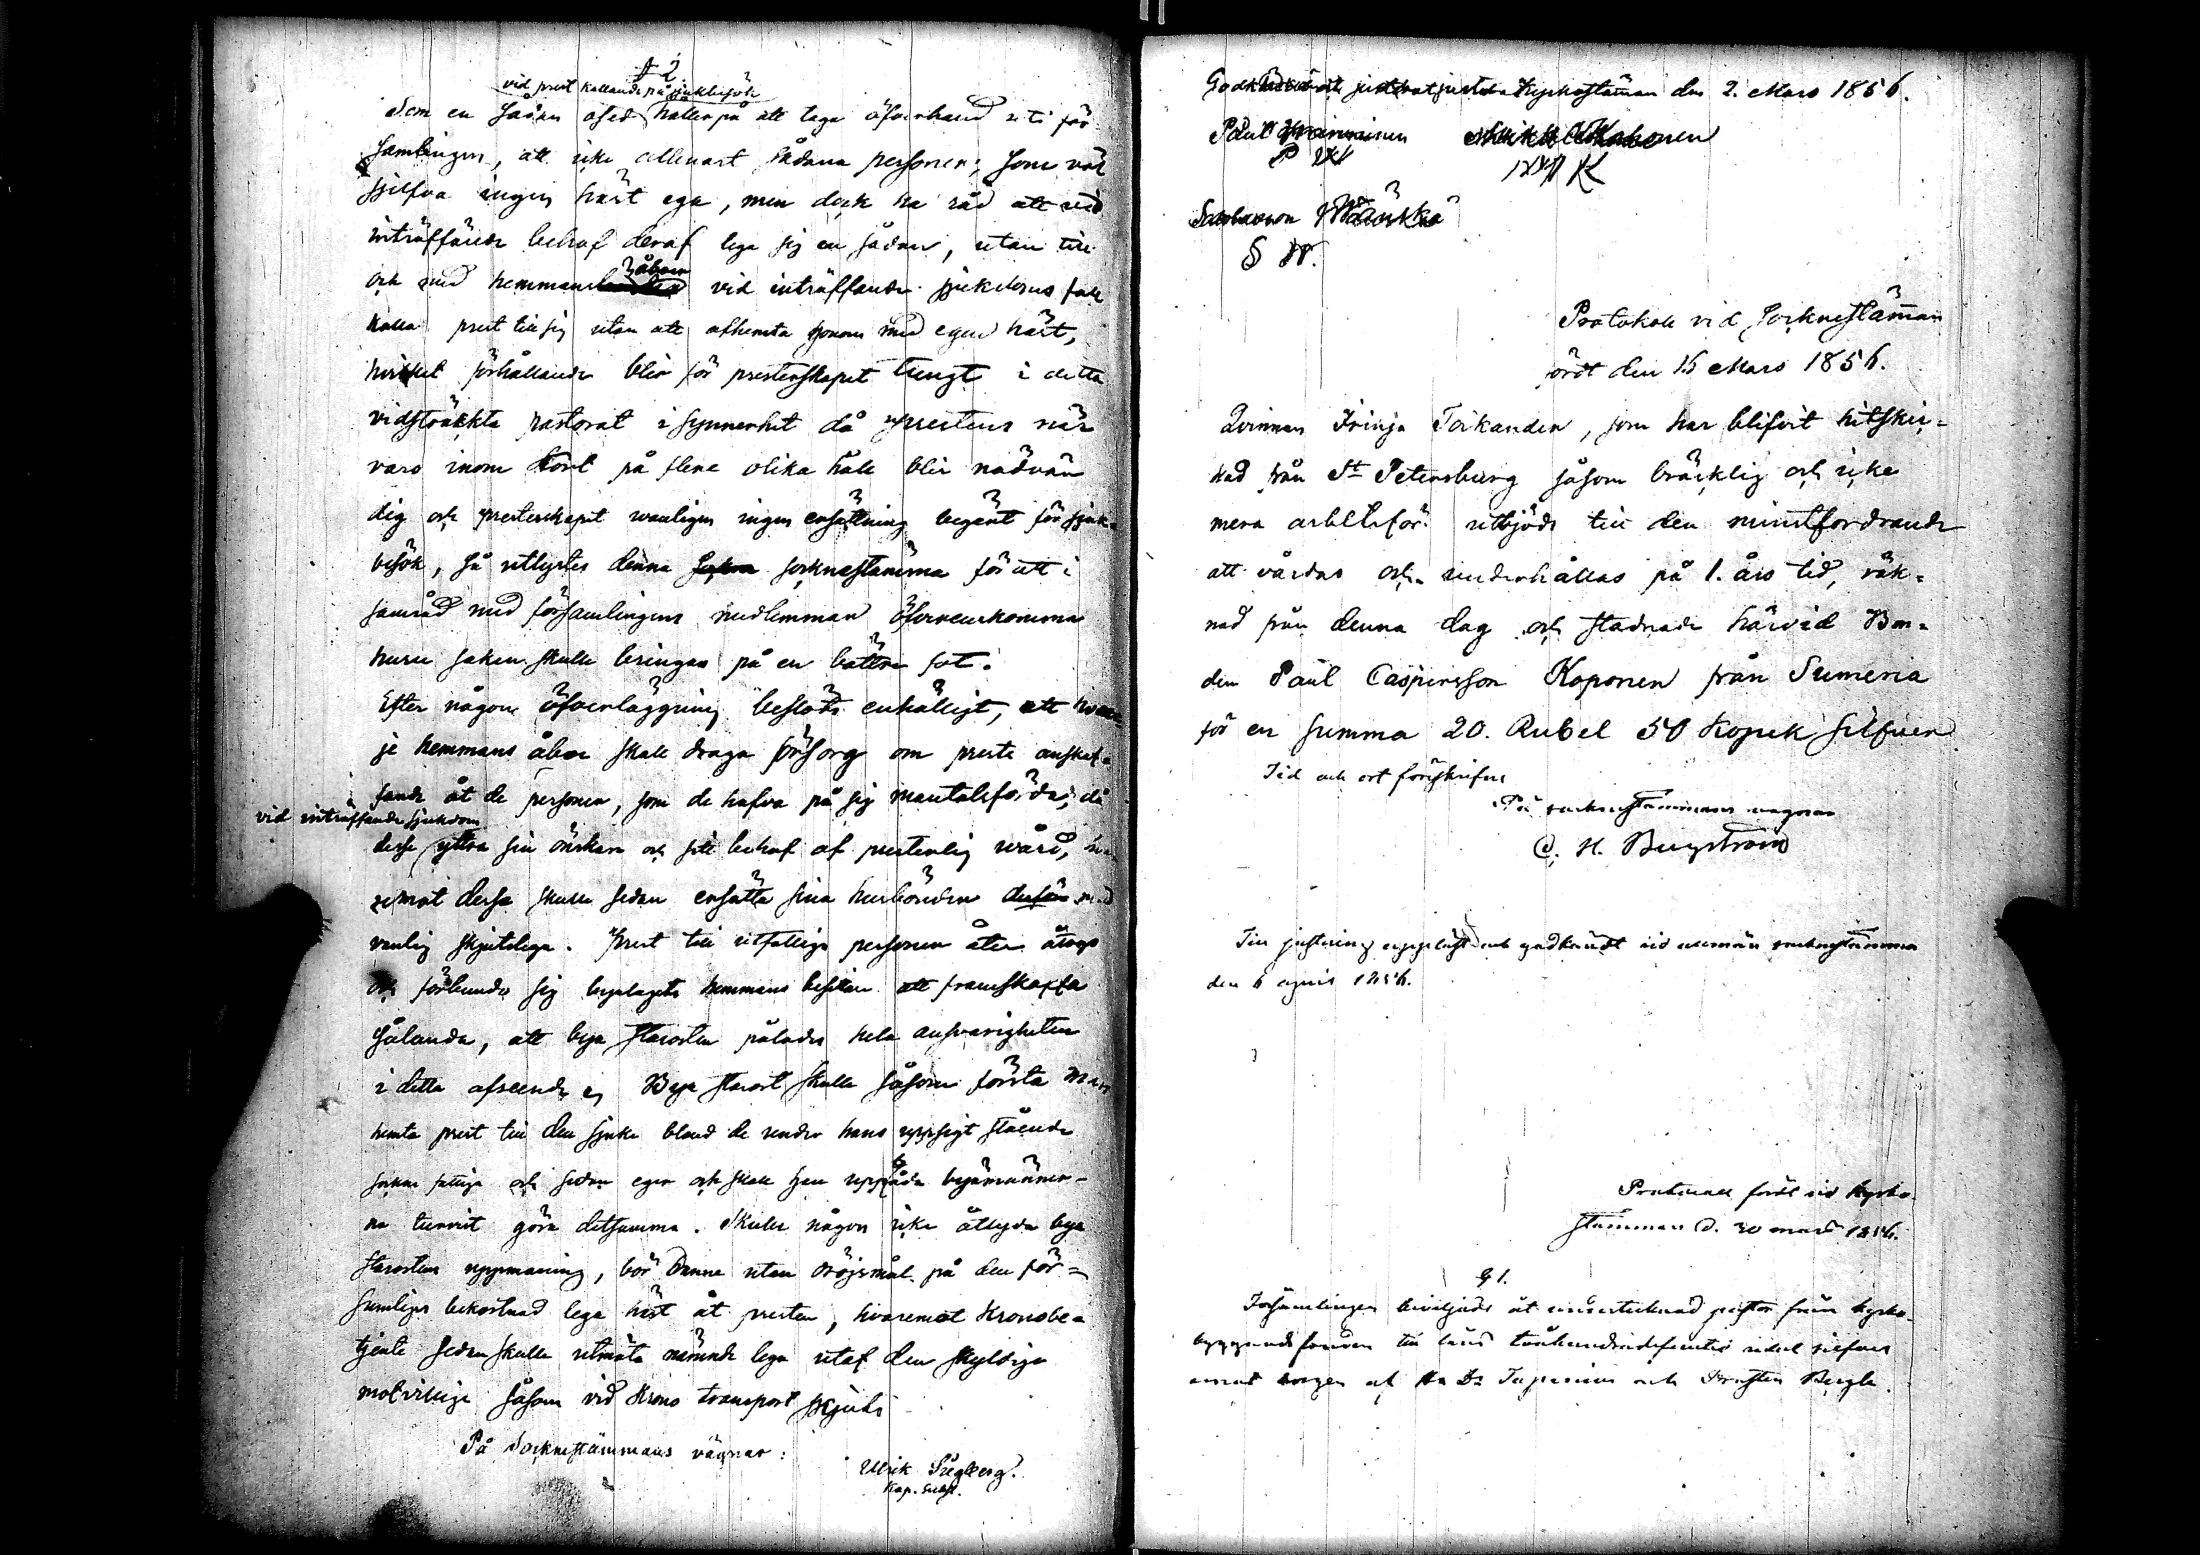 § 2.
vid prest kallande på sjukbesök
Som en sådan osed håller på att taga öfverhand uti för
samlingen, att icke allenast sådana personer, som väl
sjelfva ingen häst ega, men dock ha råd att vid
inträffande behof deraf lega sig en sådan, utan till
och med hemmans åboer vid inträffande sjukdoms fall
kalla prest till sig utan att afhemta honom med egen häst,
hvilket förhållande blir för presterskapet tungt i detta
vidsträckta pastorat i synnerhet då prestens när
varo inom kort på flere olika håll blir nödvän
dig och presterskapet vanligen ingen ersättning begärt för sjuk-
besök, så utlystes denna socknestämma för att i
samråd med församlingens medlemmar öfverenskomma
huru saken skulle bringas på en bättre fot.
Efter någon öfverläggning beslöts enhälligt, att hvar-
je hemmans åboe skall draga försorg om prests anskaf-
fande åt de personer, som de hafva på sig mantalsförda, då
vid inträffande sjukdom
desse yttra sin önskan och sitt behof af presterlig vård,
emot dessa skulle sedan ersätta sina husbönder derför med
vanlig skjutslega. Prest till utfattiga personer åter åtogo
och förbundo sig byalagets hemmans besittare att framskaffa
sålunda, att bya starosten pålades hela ansvarigheten
i detta afseende, Bya starost skulle såsom första man
hemta prest till den sjuke bland de under hans uppsigt stående
sockne fattiga och sedan eger och skall han uppbåda byamänner-
na turvist göra detsamma. Skulle någon icke åtlyda bya
starostens uppmaning, bör denne utan dröjsmål på den för-
sumliges bekostnad lega häst åt presten, hvaremot Kronobe-
tjente sedan skulle utmäta nämnde lega utaf den skyldige
motvillige såsom vid Krono transport skjuts
På Socknestämmans vägnar:
Ulrik Siegberg.
Kap. subst.
Kyrkostämman den 2. Mars 1856.
Paul
P
K
S W.
Protokoll vid Socknestämman
fördt den 16 Mars 1856.
Qvinnan Irinja Toikander, som har blifvit hitskic-
kad från St Petersburg såsom bräcklig och icke
mera arbetsför utbjöds till den minstfordrande
att vårdas och underhållas på 1. års tid, räk-
nad från denna dag och stadnade härvid Bon-
den Paul Caspersson Koponen från Sumeria
för en summa 20. Rubel 50 Kopek Silfver
Tid och ort förskrifne
På socknestämmans vägnar
C. H. Bergström
Till justering uppläst och godkändt vid allmän sockenstämma
den 6 april 1856.
Protocoll fördt vid kyrko-
stämman d. 30 mars 1856.
§ 1.
Församlingen beviljade åt undertecknad pastor från kyrko-
byggnadsfonden till låns tvåhundradefemtio rubel silfver
emot borgen af